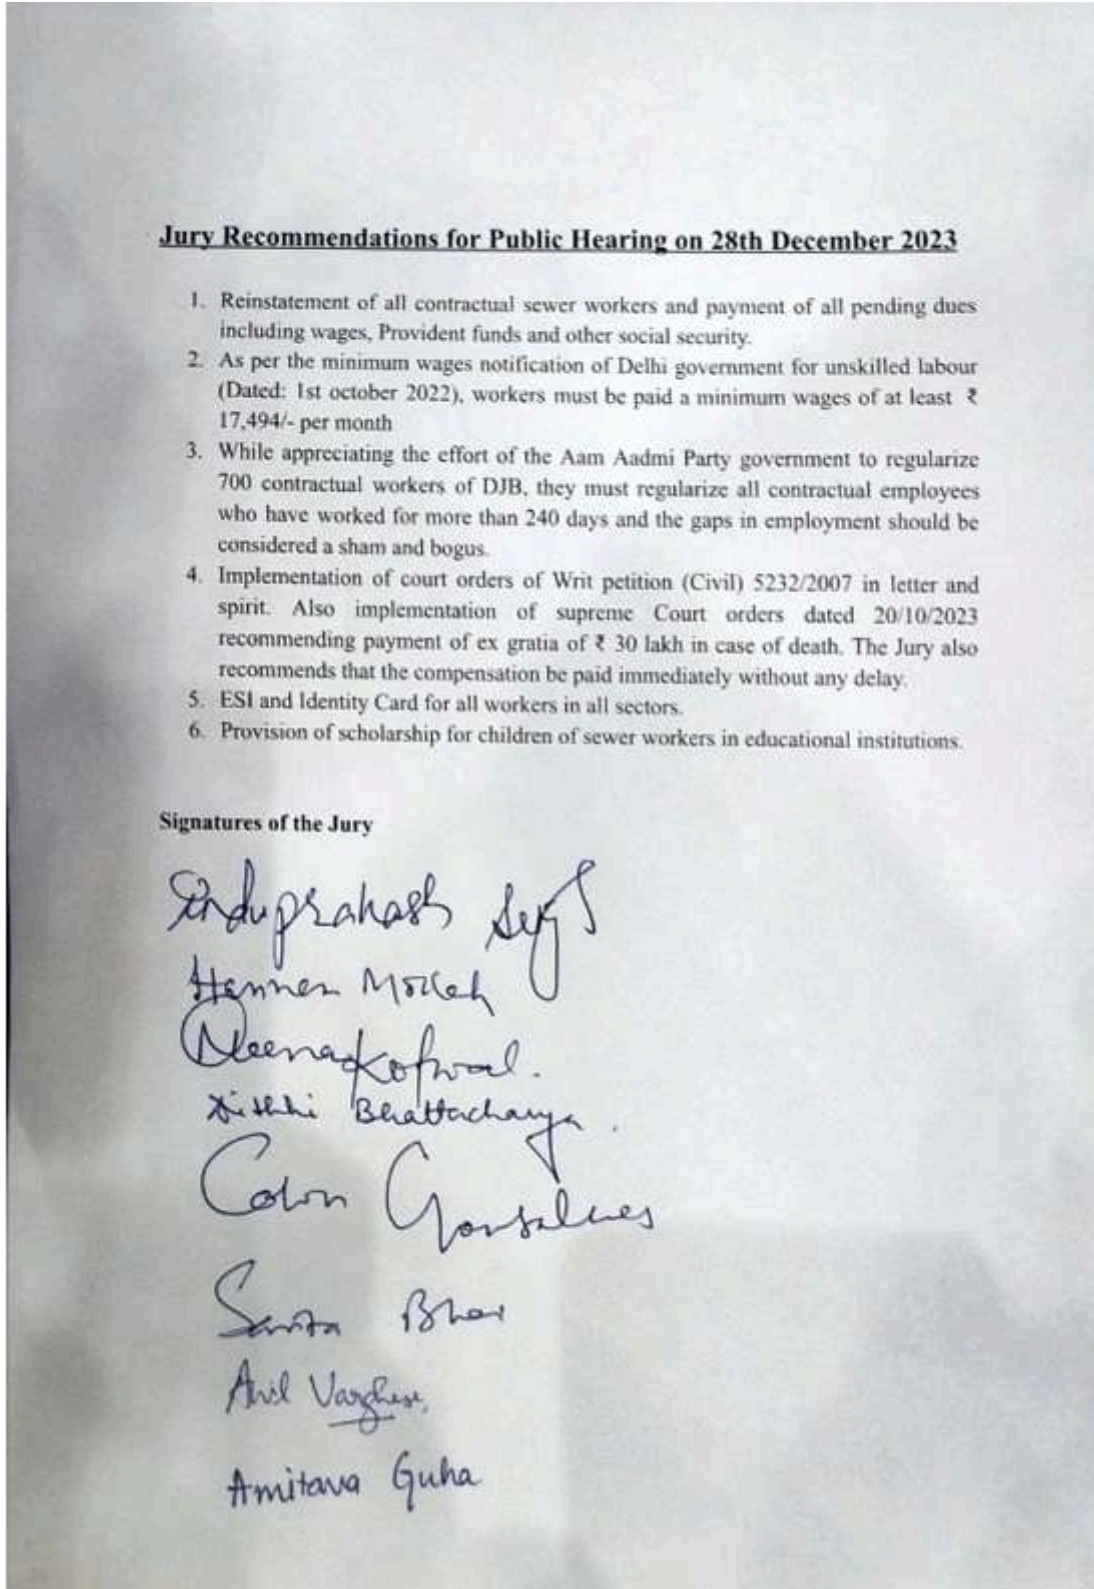 Jury Recommendations for Public Hearing on 28th December 2023
1. Reinstatement of all contractual sewer workers and payment of all pending dues
including wages, Provident funds and other social security.
2. As per the minimum wages notification of Delhi government for unskilled labour
(Dated: 1st october 2022), workers must be paid a minimum wages of at least ₹
17,494/- per month
3. While appreciating the effort of the Aam Aadmi Party government to regularize
700 contractual workers of DJB, they must regularize all contractual employees
who have worked for more than 240 days and the gaps in employment should be
considered a sham and bogus.
4. Implementation of court orders of Writ petition (Civil) 5232/2007 in letter and
spirit. Also implementation of supreme Court orders dated 20/10/2023
recommending payment of ex gratia of ₹ 30 lakh in case of death. The Jury also
recommends that the compensation be paid immediately without any delay.
5. ESI and Identity Card for all workers in all sectors.
6. Provision of scholarship for children of sewer workers in educational institutions.
Signatures of the Jury
Induprakash
Hannan Mollah
Neena
Bhattacharya.
Colin Gonsalves
Anil Varghese,
Amitava Guha